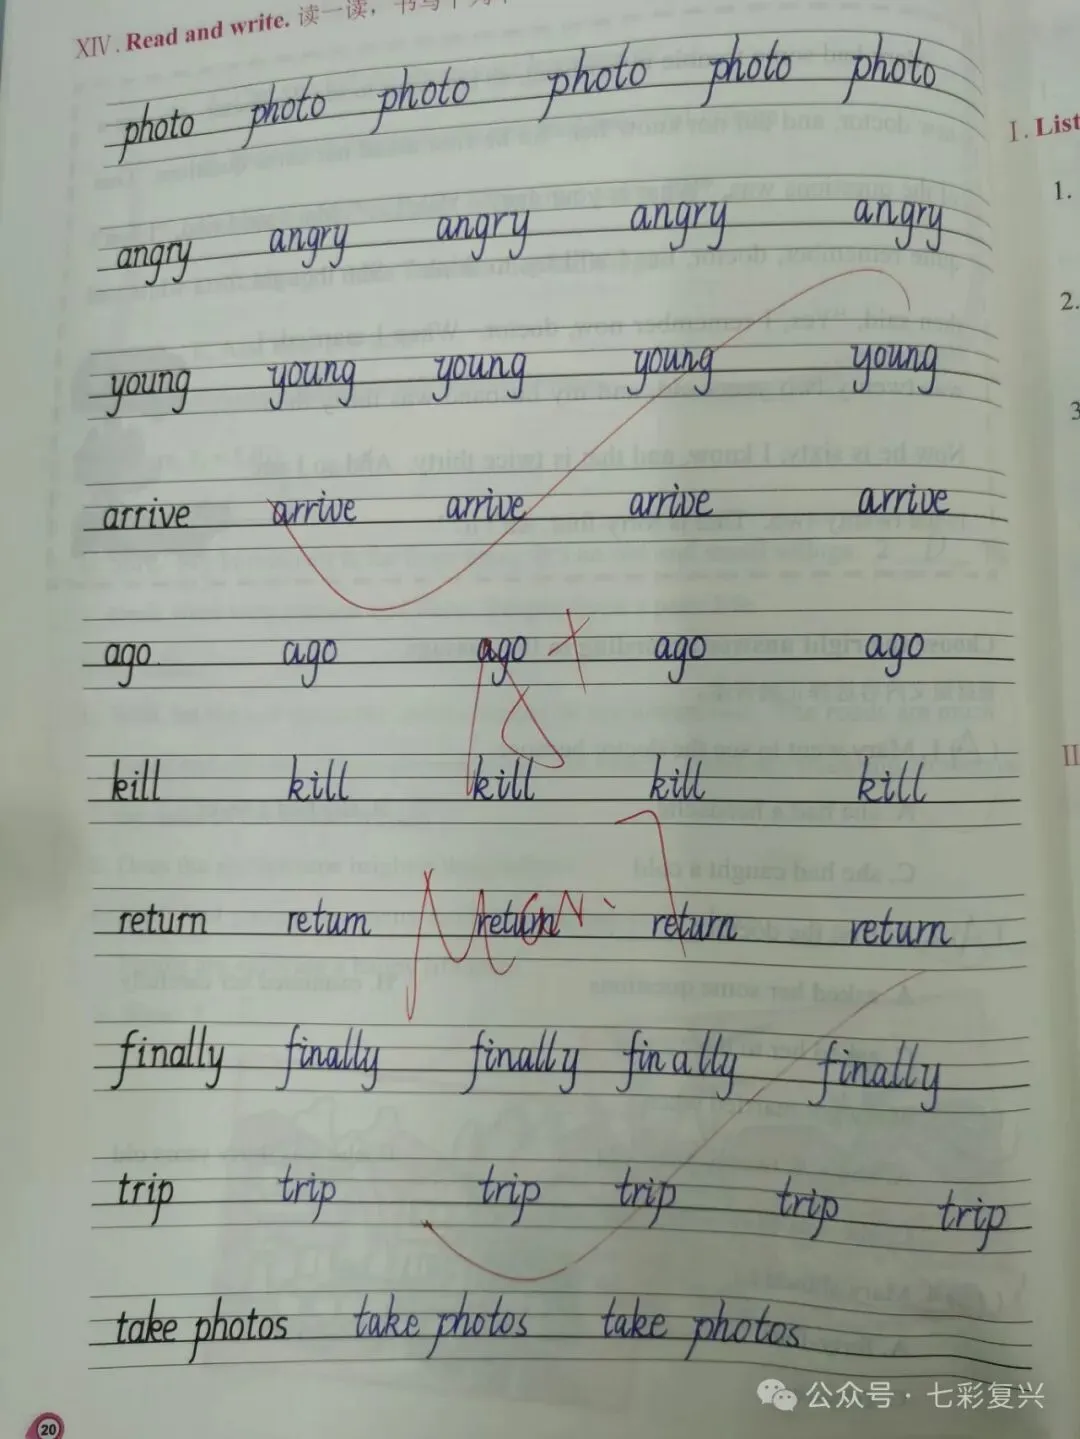 XIV. Read and write. 读一读，书写
photo photo photo photo photo photo
angry angry angry angry angry
young young young young young
arrive arrive arrive arrive arrive
ago ago ago ago ago
kill kill kill kill kill
return return return return return
finally finally finally finally finally
trip trip trip trip trip trip
take photos take photos take photos
20
I. List
1.
2.
3
II
公众号 · 七彩复兴